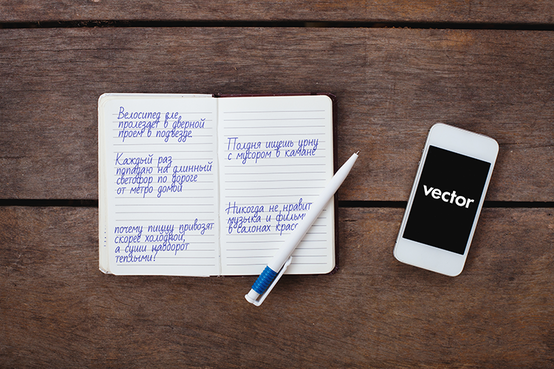 Велосипед еле
пролезает в дверной
проем в подъезде
Каждый раз
попадаю на длинный
светофор по дороге
от метро домой
почему пиццу привозят
скорее холодной,
а суши наоборот
теплыми?
Полдня ищешь урну
с мусором в камане
Никогда не нравит
музыка и фильм
в салонах крас
vector